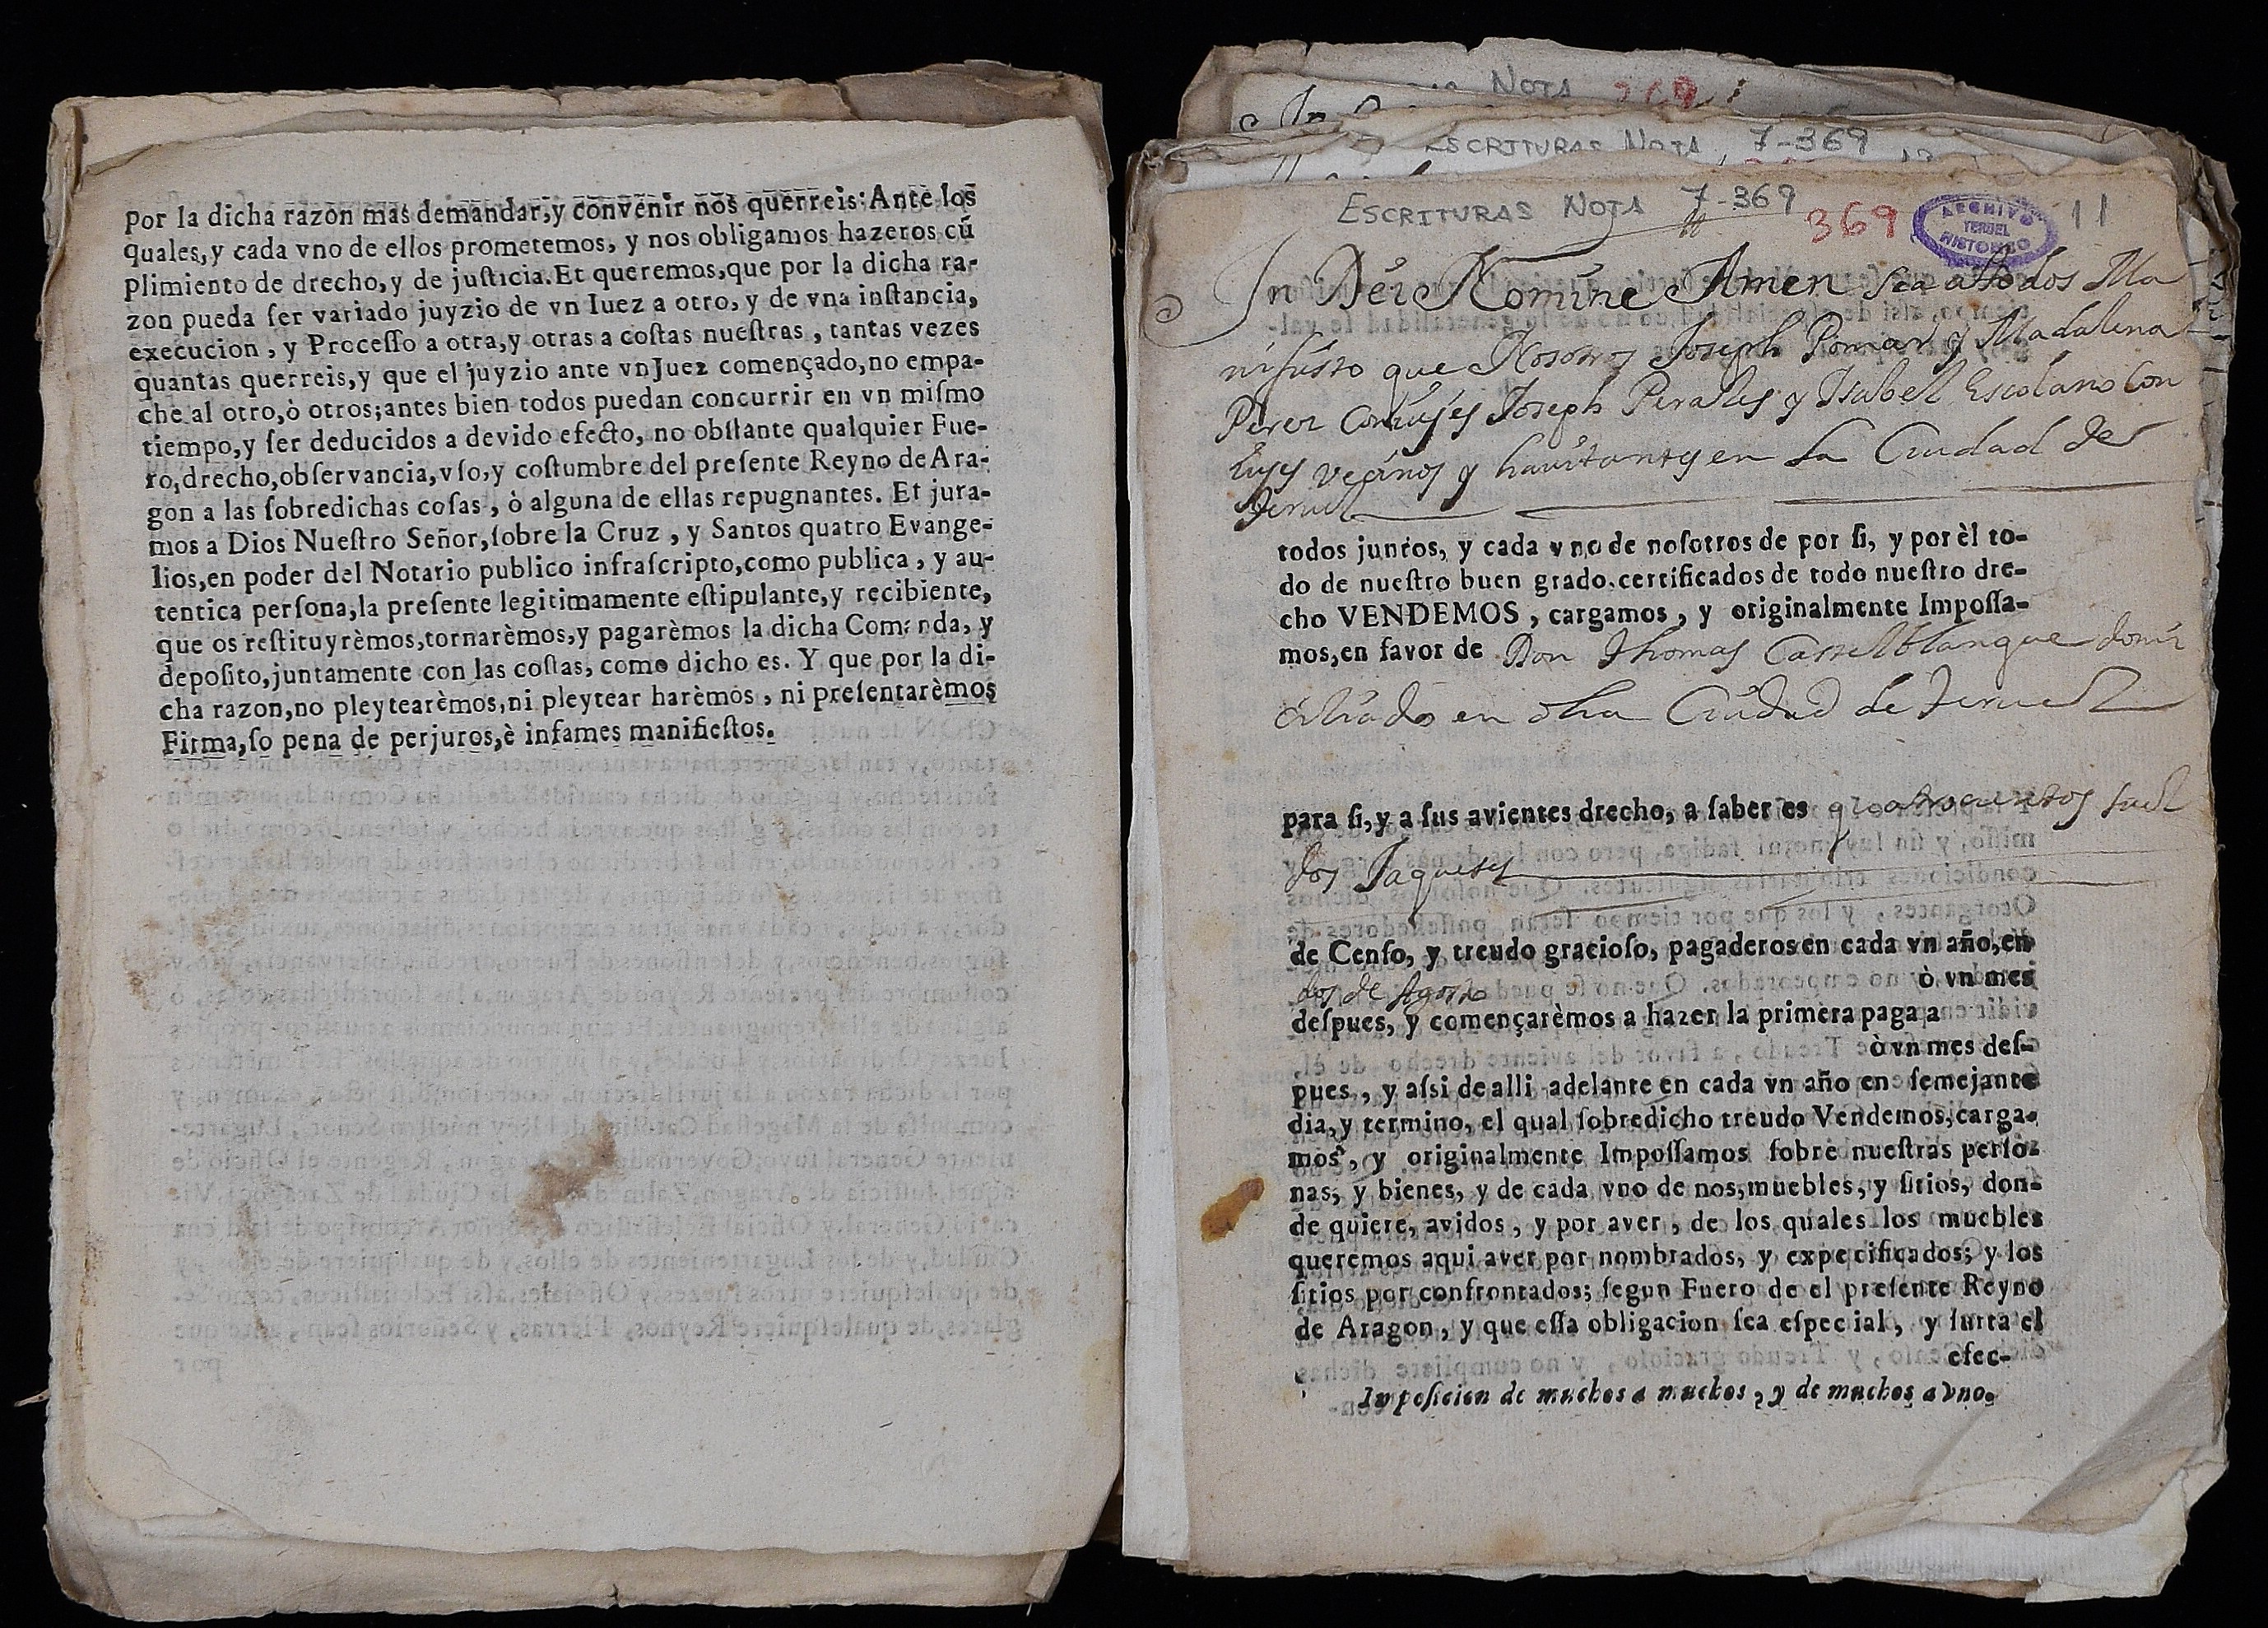 por la dicha razon mas demandar, y convenir nos querreis: Ante los
quales, y cada vno de ellos prometemos, y nos obligamos hazeros cū
plimiento de drecho, y de juſticia. Et queremos, que por la dicha ra-
zon pueda ſer variado juyzio de vn Iuez a otro, y de vna inſtancia,
execucion, y Proceſſo a otra, y otras a coſtas nueſtras, tantas vezes
quantas querreis, y que el juyzio ante vn Juez començado, no empa-
che al otro, ò otros; antes bien todos puedan concurrir en vn miſmo
tiempo, y ſer deducidos a devido efecto, no obſtante qualquier Fue-
ro, drecho, obſervancia, vſo, y coſtumbre del preſente Reyno de Ara-
gon a las ſobredichas coſas, ò alguna de ellas repugnantes. Et jura-
mos a Dios Nueſtro Señor, ſobre la Cruz, y Santos quatro Evange-
lios, en poder del Notario publico infraſcripto, como publica, y au-
tentica perſona, la preſente legitimamente eſtipulante, y recibiente,
que os reſtituyrèmos, tornarèmos, y pagarèmos la dicha Comanda, y
depoſito, juntamente con las coſtas, como dicho es. Y que por la di-
cha razon, no pleytearèmos, ni pleytear harèmos, ni preſentarèmos
Firma, ſo pena de perjuros, è infames manifieſtos.
NOTA 369
ESCRITURAS NOTA 7-369
ESCRITURAS NOTA 7-369 369 11
ARCHIVO
TERUEL
HISTORICO
In Dei Nomine Amen Sea a todos Ma
nifiesto que Nosotros Joseph Pomar y Madalena
Perez Conjuges Joseph Perales y Isabel Escolano Con
iuges vecinos y havitantes en la Ciudad de
Teruel
todos juntos, y cada vno de noſotros de por ſi, y por èl to-
do de nueſtro buen grado, certificados de todo nueſtro dre-
cho VENDEMOS, cargamos, y originalmente Impoſſa-
mos, en favor de Don Thomas Castelblanque domi
ciliado en dha Ciudad de Teruel
para ſi, y a ſus avientes drecho, a ſaber es quatrocientos suel
dos Jaqueses
de Cenſo, y treudo gracioſo, pagaderos en cada vn año, en
dos de Agosto ò vn mes
deſpues, y començarèmos a hazer la primera paga a
ò vn mes deſ-
pues, y aſsi de alli adelante en cada vn año en ſemejante
dia, y termino, el qual ſobredicho treudo Vendemos, carga-
mos, y originalmente Impoſſamos ſobre nueſtras perſo-
nas, y bienes, y de cada vno de nos, muebles, y ſitios, don-
de quiere, avidos, y por aver, de los quales los muebles
queremos aqui aver por nombrados, y expecificados; y los
ſitios por confrontados; ſegun Fuero de el preſente Reyno
de Aragon, y que eſſa obligacion ſea eſpecial, y ſurta el
efec-
Impoſicion de muchos a muchos, y de muchos a vno.